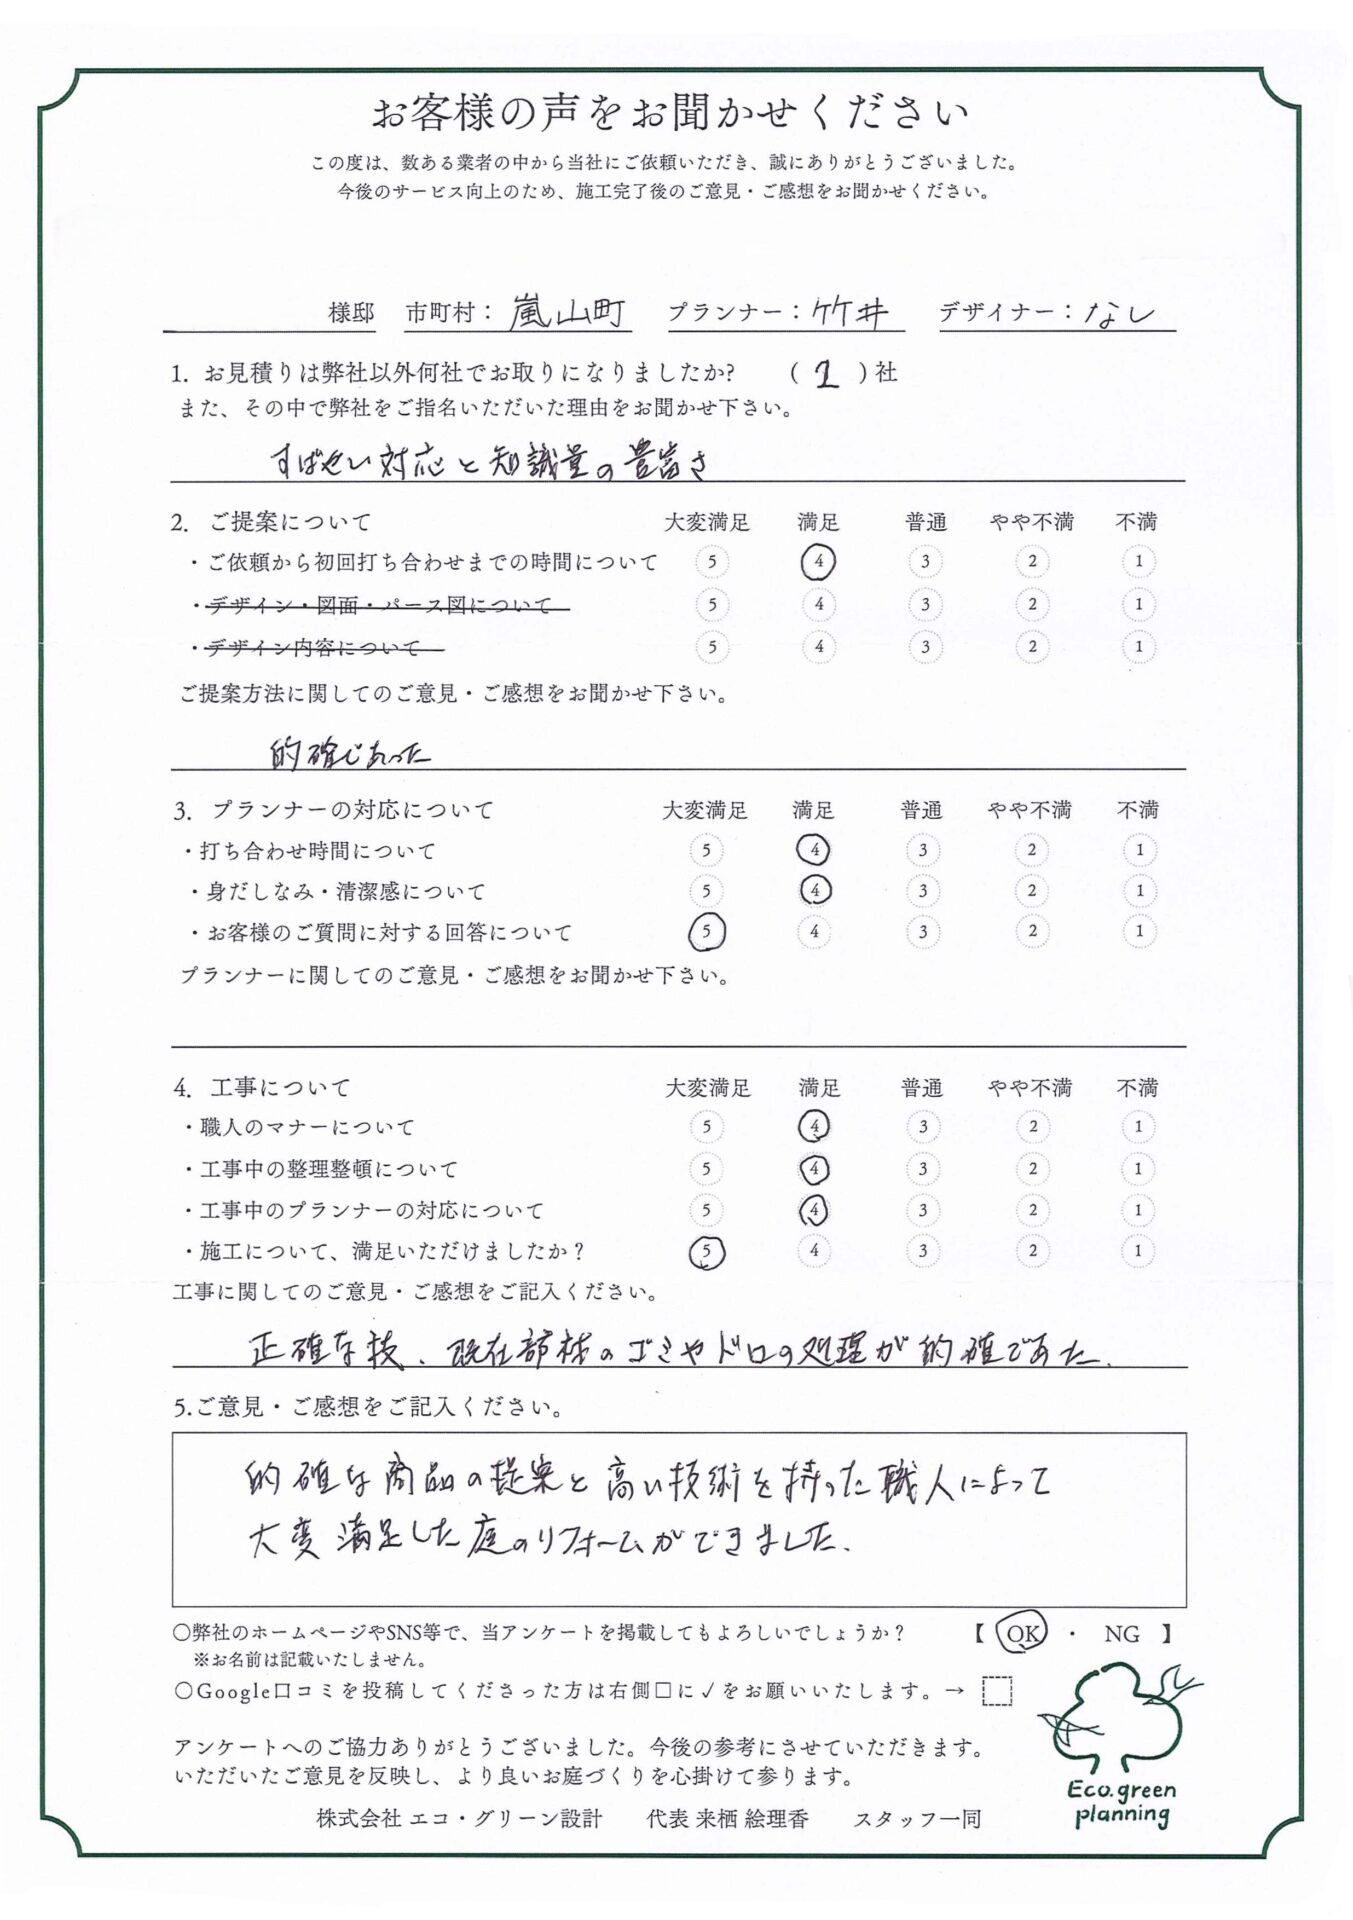 お客様の声をお聞かせください
この度は、数ある業者の中から当社にご依頼いただき、誠にありがとうございました。
今後のサービス向上のため、施工完了後のご意見・ご感想をお聞かせください。
様邸 市町村：嵐山町 プランナー：竹井 デザイナー：なし
1. お見積りは弊社以外何社でお取りになりましたか? ( 1 )社
また、その中で弊社をご指名いただいた理由をお聞かせ下さい。
すばやい対応と知識量の豊富さ
2. ご提案について 大変満足 満足 普通 やや不満 不満
・ご依頼から初回打ち合わせまでの時間について 5 4 3 2 1
・デザイン・図面・パース図について 5 4 3 2 1
・デザイン内容について 5 4 3 2 1
ご提案方法に関してのご意見・ご感想をお聞かせ下さい。
的確であった
3. プランナーの対応について 大変満足 満足 普通 やや不満 不満
・打ち合わせ時間について 5 4 3 2 1
・身だしなみ・清潔感について 5 4 3 2 1
・お客様のご質問に対する回答について 5 4 3 2 1
プランナーに関してのご意見・ご感想をお聞かせ下さい。
4. 工事について 大変満足 満足 普通 やや不満 不満
・職人のマナーについて 5 4 3 2 1
・工事中の整理整頓について 5 4 3 2 1
・工事中のプランナーの対応について 5 4 3 2 1
・施工について、満足いただけましたか？ 5 4 3 2 1
工事に関してのご意見・ご感想をご記入ください。
正確な技、既在部材のゴミやドロの処理が的確であった。
5.ご意見・ご感想をご記入ください。
的確な商品の提案と高い技術を持った職人によって
大変満足した庭のリフォームができました。
〇弊社のホームページやSNS等で、当アンケートを掲載してもよろしいでしょうか？ 【 OK ・ NG 】
※お名前は記載いたしません。
〇Google口コミを投稿してくださった方は右側□に✓をお願いいたします。→
アンケートへのご協力ありがとうございました。今後の参考にさせていただきます。
いただいたご意見を反映し、より良いお庭づくりを心掛けて参ります。
Eco.green
planning
株式会社 エコ・グリーン設計 代表 来栖 絵理香 スタッフ一同